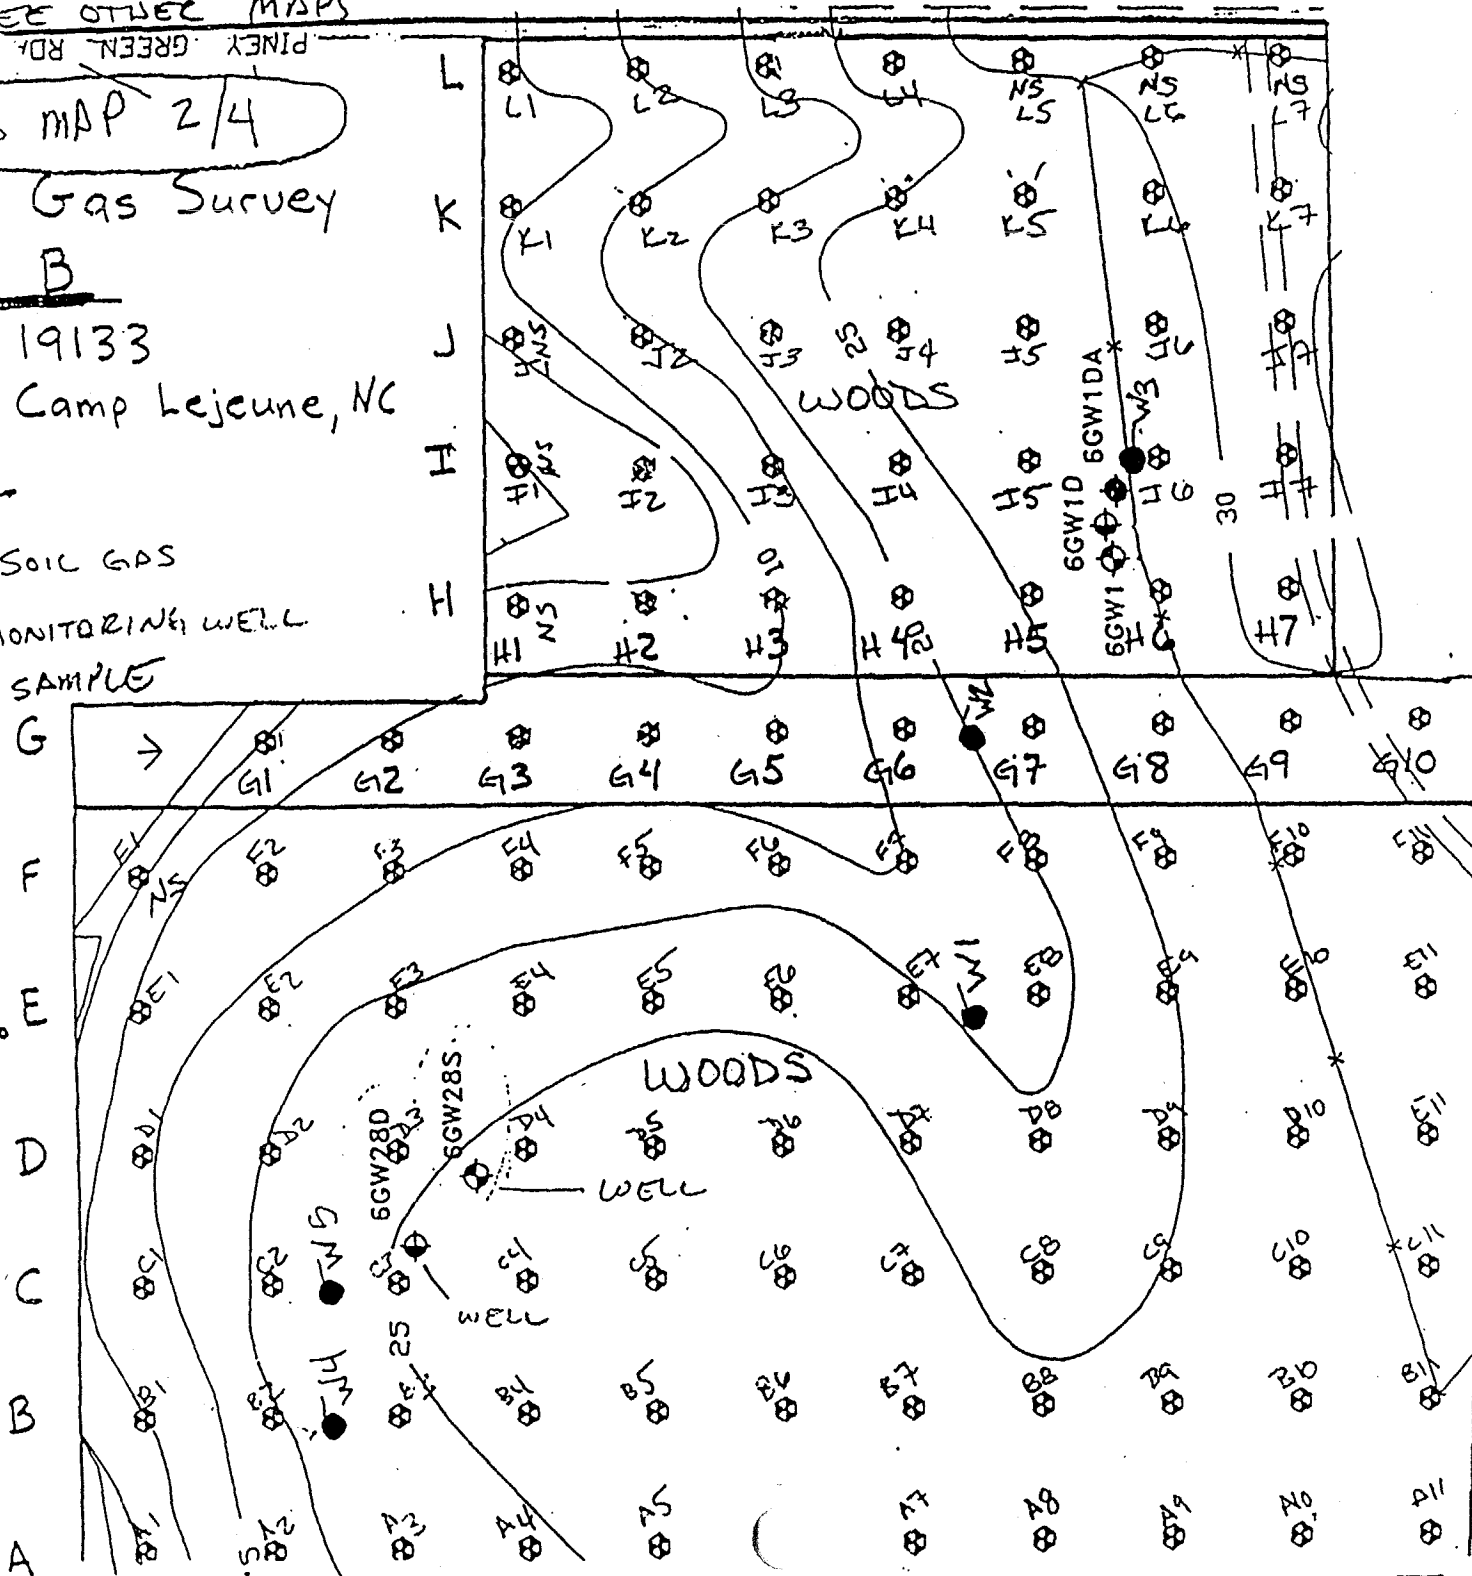 OTHER MAPS
PINEY GREEN RD.
MAP 2/4
Gas Survey
B
19133
Camp Lejeune, NC
SOIL GAS
MONITORING WELL
SAMPLE
L
L1 L2 L3 L4 NS L5 NS L6 NS L7
K
K1 K2 K3 K4 K5 K6 K7
J
NS J2 J3 25 J4 J5 J6 J7
WOODS
6GW1DA W3
I
I1 NS I2 I3 I4 I5 I6 I7
6GW1D
30
10
H
NS
6GW1
H1 H2 H3 H4 20 H5 H6 H7
W2
G
G1 G2 G3 G4 G5 G6 G7 G8 G9 G10
F
F1 F2 F3 F4 F5 F6 F7 F8 F9 F10 F11
NS
W1
E
E1 E2 E3 E4 E5 E6 E7 E8 E9 E11
WOODS
6GW28S
6GW28D
D
D1 D2 D3 D4 D5 D6 D7 D8 D9 D10
WELL
W5
C
C1 C2 C3 C4 C5 C6 C7 C8 C9 C10 C11
WELL
25
W4
B
B1 B2 B4 B5 B6 B7 B8 B9 B10 B11
A
A1 A2 A3 A4 A5 A7 A8 A9 A10 A11